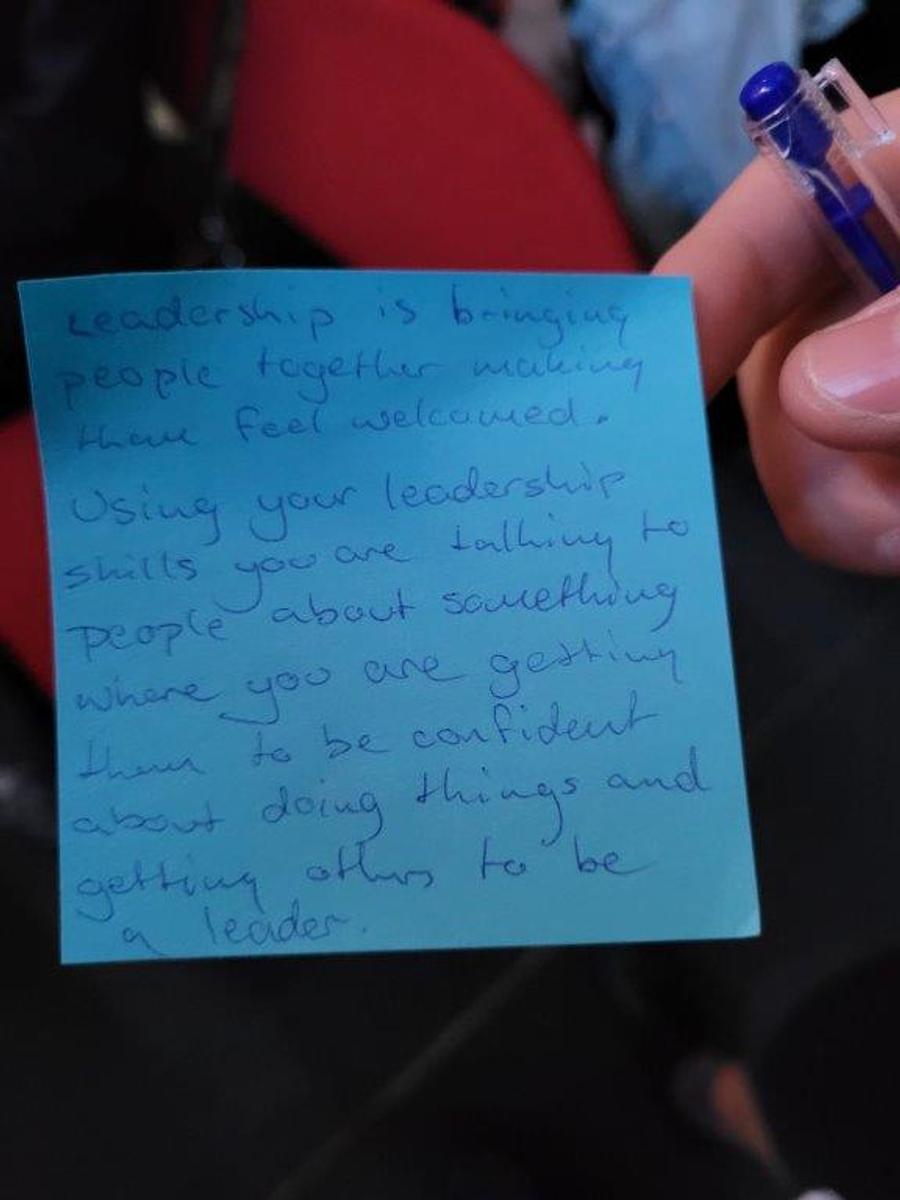 Leadership is bringing
people together making
them feel welcomed.
Using your leadership
skills you are talking to
people about something
where you are getting
them to be confident
about doing things and
getting others to be
a leader.